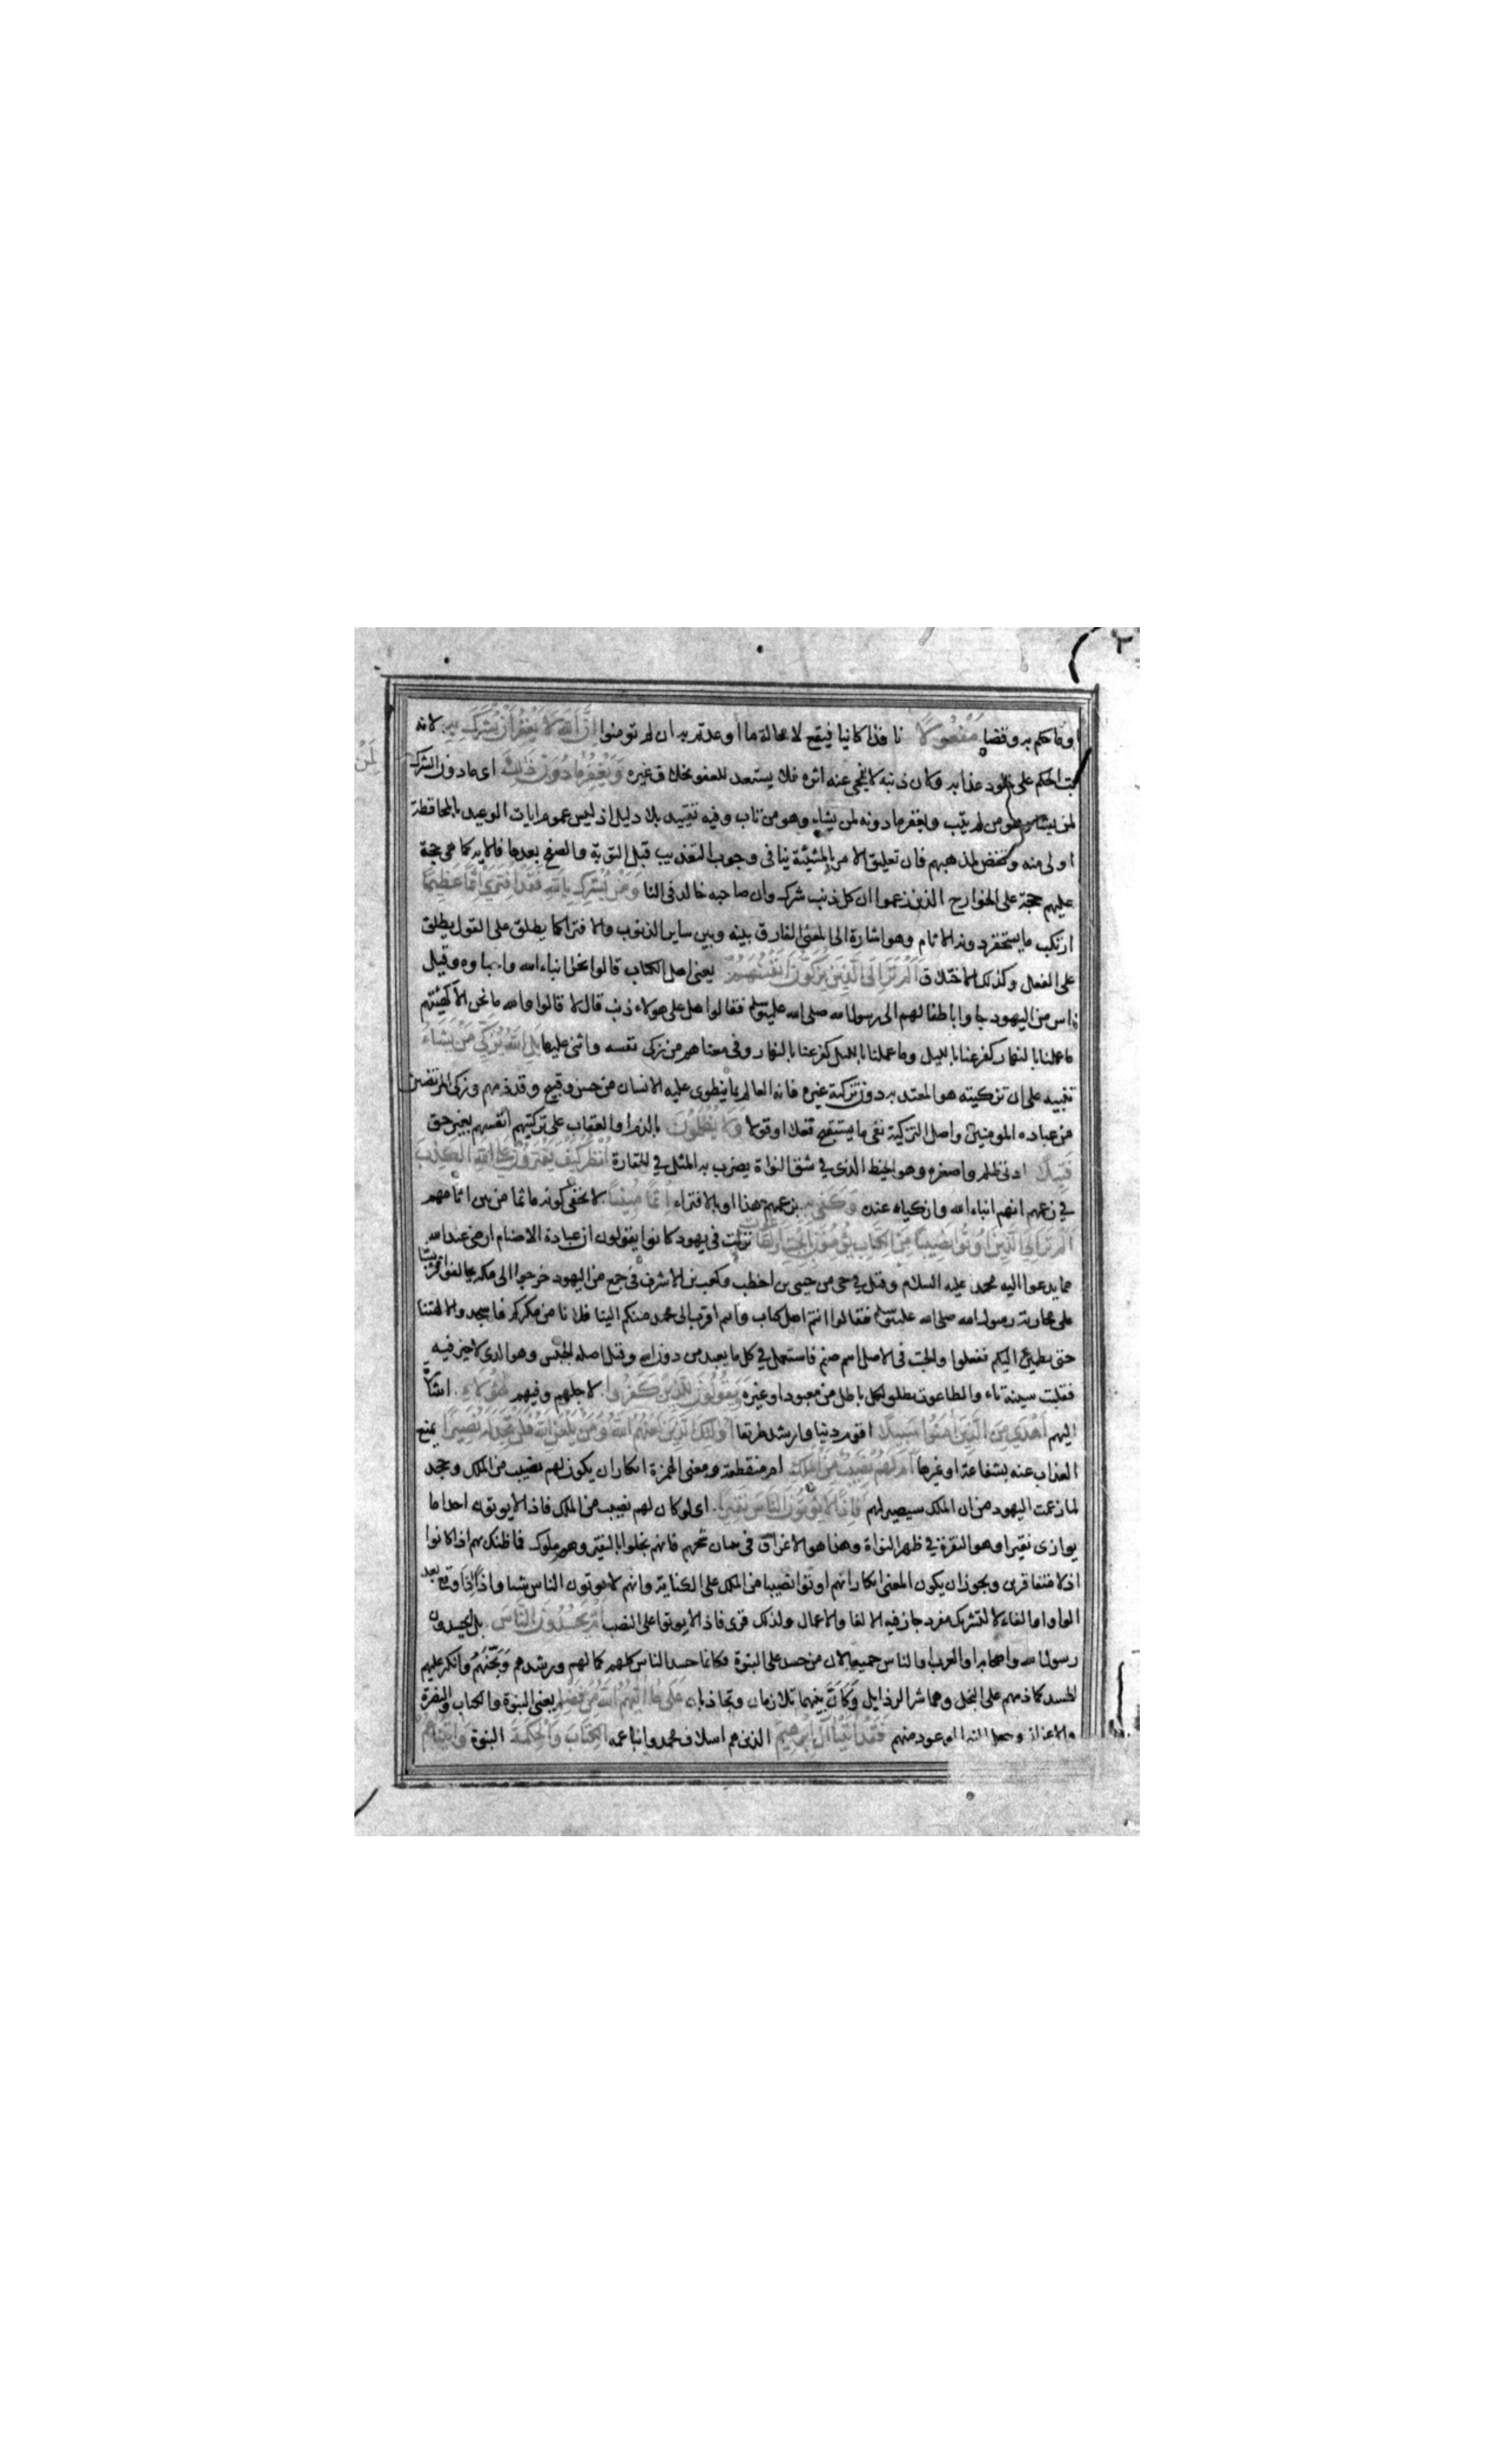 او ما حكم به وقضاه مَفْعُولًا نافذا كائنا فيقع لا محالة ما اوعدتم به ان لم تومنوا إِنَّ اللَّهَ لَا يَغْفِرُ أَنْ يُشْرَكَ بِهِ لانه
بت الحكم على خلود عذابه وكان ذنبه لا ينمحي عنه اثره فلا يستعد للعفو بخلاف غيره وَيَغْفِرُ مَا دُونَ ذَلِكَ اى ما دون الشرك
لِمَنْ
لمن يشاء وهو من لم يتب ويغفر ما دونه لمن يشاء وهو من تاب وفيه تقييد بلا دليل اذ ليس عموم ايات الوعيد بالمحافظة
اولى منه ونقض لمذهبهم فان تعليق الامر بالمشيئة ينافى وجوب التعذيب قبل التوبة والصفح بعدها فالاية كما هى حجة
عليهم حجة على الخوارج الذين زعموا ان كل ذنب شرك وان صاحبه خالد فى النا وَمَنْ يُشْرِكْ بِاللَّهِ فَقَدِ افْتَرَى إِثْمًا عَظِيمًا
ارتكب ما يستحقر دونه الاثام وهو اشارة الى المعنى الفارق بينه وبين ساير الذنوب والافترا كما يطلق على القول يطلق
على الفعل وكذلك الاختلاق أَلَمْ تَرَ إِلَى الَّذِينَ يُزَكُّونَ أَنْفُسَهُمْ يعنى اهل الكتاب قالوا نحن ابناء الله واحباوه وقيل
ناس من اليهود جاوا باطفالهم الى رسول الله صلى الله عليه وسلم فقالوا هل على هولاء ذنب قال لا قالوا والله ما نحن الا كهيئتهم
ما عملنا بالنهار كفر عنا بالليل وما عملنا بالليل كفر عنا بالنهار وفى معناهم من زكى نفسه واثنى عليها بَلِ اللَّهُ يُزَكِّي مَنْ يَشَاءُ
تنبيه على ان تزكيته هو المعتد به دون تزكية غيره فانه العالم بما ينطوى عليه الانسان من حسن وقبيح وقد ذمهم وزكى المرتضين
من عباده المومنين واصل التزكية نفى ما يستقبح فعلا او قولا وَلَا يُظْلَمُونَ بالذم او العقاب على تزكيتهم انفسهم بغير حق
فَتِيلًا ادنى ظلم واصغره وهو الخيط الذى في شق النواة يضرب به المثل في الحقارة انْظُرْ كَيْفَ يَفْتَرُونَ عَلَى اللَّهِ الْكَذِبَ
في زعمهم انهم ابناء الله وازكياه عنده وَكَفَى بِهِ بزعمهم هذا او بالافتراء إِثْمًا مُبِينًا لا يخفى كونه ماثما من بين اثامهم
أَلَمْ تَرَ إِلَى الَّذِينَ أُوتُوا نَصِيبًا مِنَ الْكِتَابِ يُؤْمِنُونَ بِالْجِبْتِ وَالطَّاغُوتِ نزلت فى يهود كانوا يقولون ان عبادة الاصنام ارضى عند الله
مما يدعوا اليه محمد عليه السلام وقيل في حيى بن اخطب وكعب بن الاشرف فى جمع من اليهود خرجوا الى مكة يحالفوا قريشا
على محاربة رسول الله صلى الله عليه وسلم فقالوا انتم اهل كتاب وانتم اقرب الى محمد منكم الينا فلا نامن مكركم فاسجدوا لالهتنا
حتى نطمئن اليكم ففعلوا والجبت فى الاصل اسم صنم فاستعمل في كل ما يعبد من دون الله وقيل اصله الجبس وهو الذى لا خير فيه
فقلبت سينه تاء والطاغوت يطلق لكل باطل من معبود او غيره وَيَقُولُونَ لِلَّذِينَ كَفَرُوا لاجلهم وفيهم هَؤُلَاءِ اشارة
اليهم أَهْدَى مِنَ الَّذِينَ آمَنُوا سَبِيلًا اقوم دينا وارشد طريقا أُولَئِكَ الَّذِينَ لَعَنَهُمُ اللَّهُ وَمَنْ يَلْعَنِ اللَّهُ فَلَنْ تَجِدَ لَهُ نَصِيرًا يمنع
العذاب عنه بشفاعة او غيرها أَمْ لَهُمْ نَصِيبٌ مِنَ الْمُلْكِ ام منقطعة ومعنى الهمزة انكار ان يكون لهم نصيب من الملك وجحد
لما زعمت اليهود من ان الملك سيصير لهم فَإِذًا لَا يُؤْتُونَ النَّاسَ نَقِيرًا اى لو كان لهم نصيب من الملك فاذا لا يوتون احدا ما
يوازى نقيرا وهو النقرة في ظهر النواة وهذا هو الاغراق فى بيان شحهم فانهم بخلوا بالنقير وهم ملوك فما ظنك بهم اذا كانوا
اذلا متفاقرين ويجوز ان يكون المعنى انكار انهم اوتوا نصيبا من الملك على الكناية وانهم لا يوتون الناس شيا واذا اذا وقع بعد
الواو او الفاء لا لتشريك مفرد جاز فيه الالغا والاعمال ولذلك قرى فاذا لا يوتوا على النصب أَمْ يَحْسُدُونَ النَّاسَ بل ايحسدون
رسول الله واصحابه او العرب او الناس جميعا لان من حسد على النبوة فكانما حسد الناس كلهم كمالهم ورشدهم وبخّتهم وانكر عليهم
الحسد كما ذمهم على البخل وهما شر الرذايل وكان بينهما تلازما وتجاذبا عَلَى مَا آتَاهُمُ اللَّهُ مِنْ فَضْلِهِ يعنى النبوة والكتاب والنصرة
والاعزاز وجعل النبى الموعود منهم فَقَدْ آتَيْنَا آلَ إِبْرَاهِيمَ الذين هم اسلاف محمد وابناء عمه الْكِتَابَ وَالْحِكْمَةَ النبوة وَآتَيْنَاهُمْ